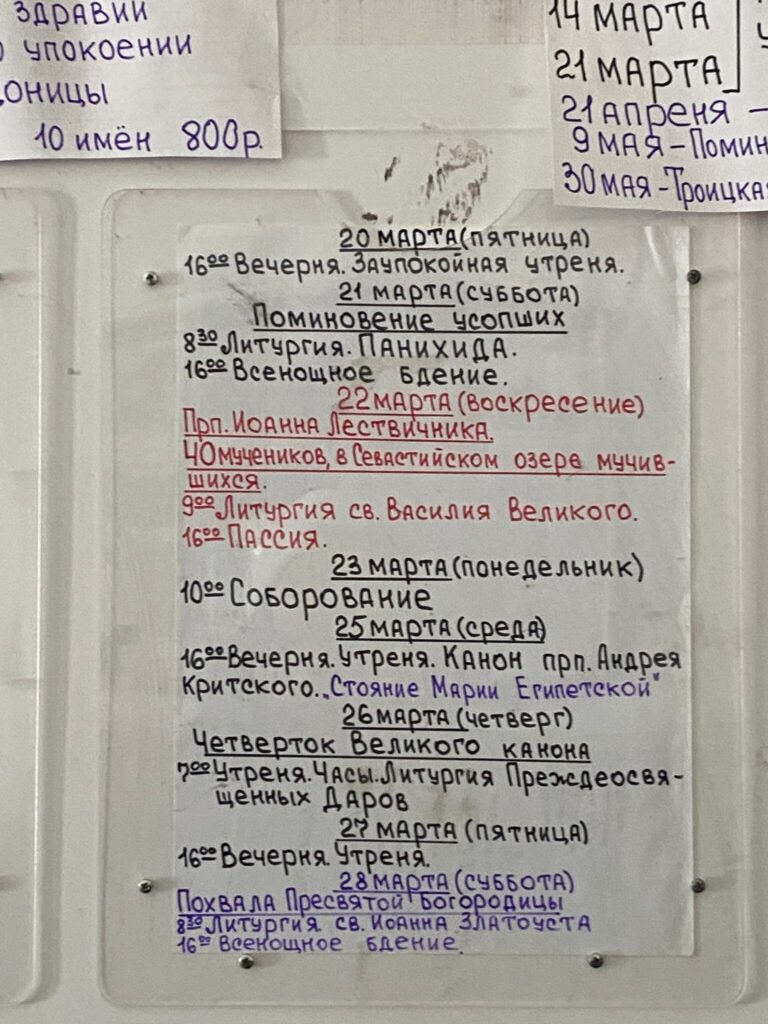 ЗДРАВИИ
УПОКОЕНИИ
10 имён 800р.
14 МАРТА
21 МАРТА
21 АПРЕНЯ –
9 МАЯ – Помин
30 МАЯ – Троицка
20 МАРТА (пятница)
16⁰⁰ Вечерня. Заупокойная утреня.
21 МАРТА (суббота)
Поминовение усопших
8³⁰ Литургия. ПАНИХИДА.
16⁰⁰ Всенощное бдение.
22 МАРТА (воскресение)
Прп. Иоанна Лествичника.
40 мучеников, в Севастийском озере мучив-
шихся.
9⁰⁰ Литургия св. Василия Великого.
16⁰⁰ Пассия.
23 МАРТА (понедельник)
10⁰⁰ Соборование
25 МАРТА (среда)
16⁰⁰ Вечерня. Утреня. Канон прп. Андрея
Критского. „Стояние Марии Египетской"
26 МАРТА (четверг)
Четверток Великого канона
7⁰⁰ Утреня. Часы. Литургия Преждеосвя-
щенных Даров
27 МАРТА (пятница)
16⁰⁰ Вечерня. Утреня.
28 МАРТА (суббота)
Похвала Пресвятой Богородицы
8³⁰ Литургия св. Иоанна Златоуста
16⁰⁰ Всенощное бдение.